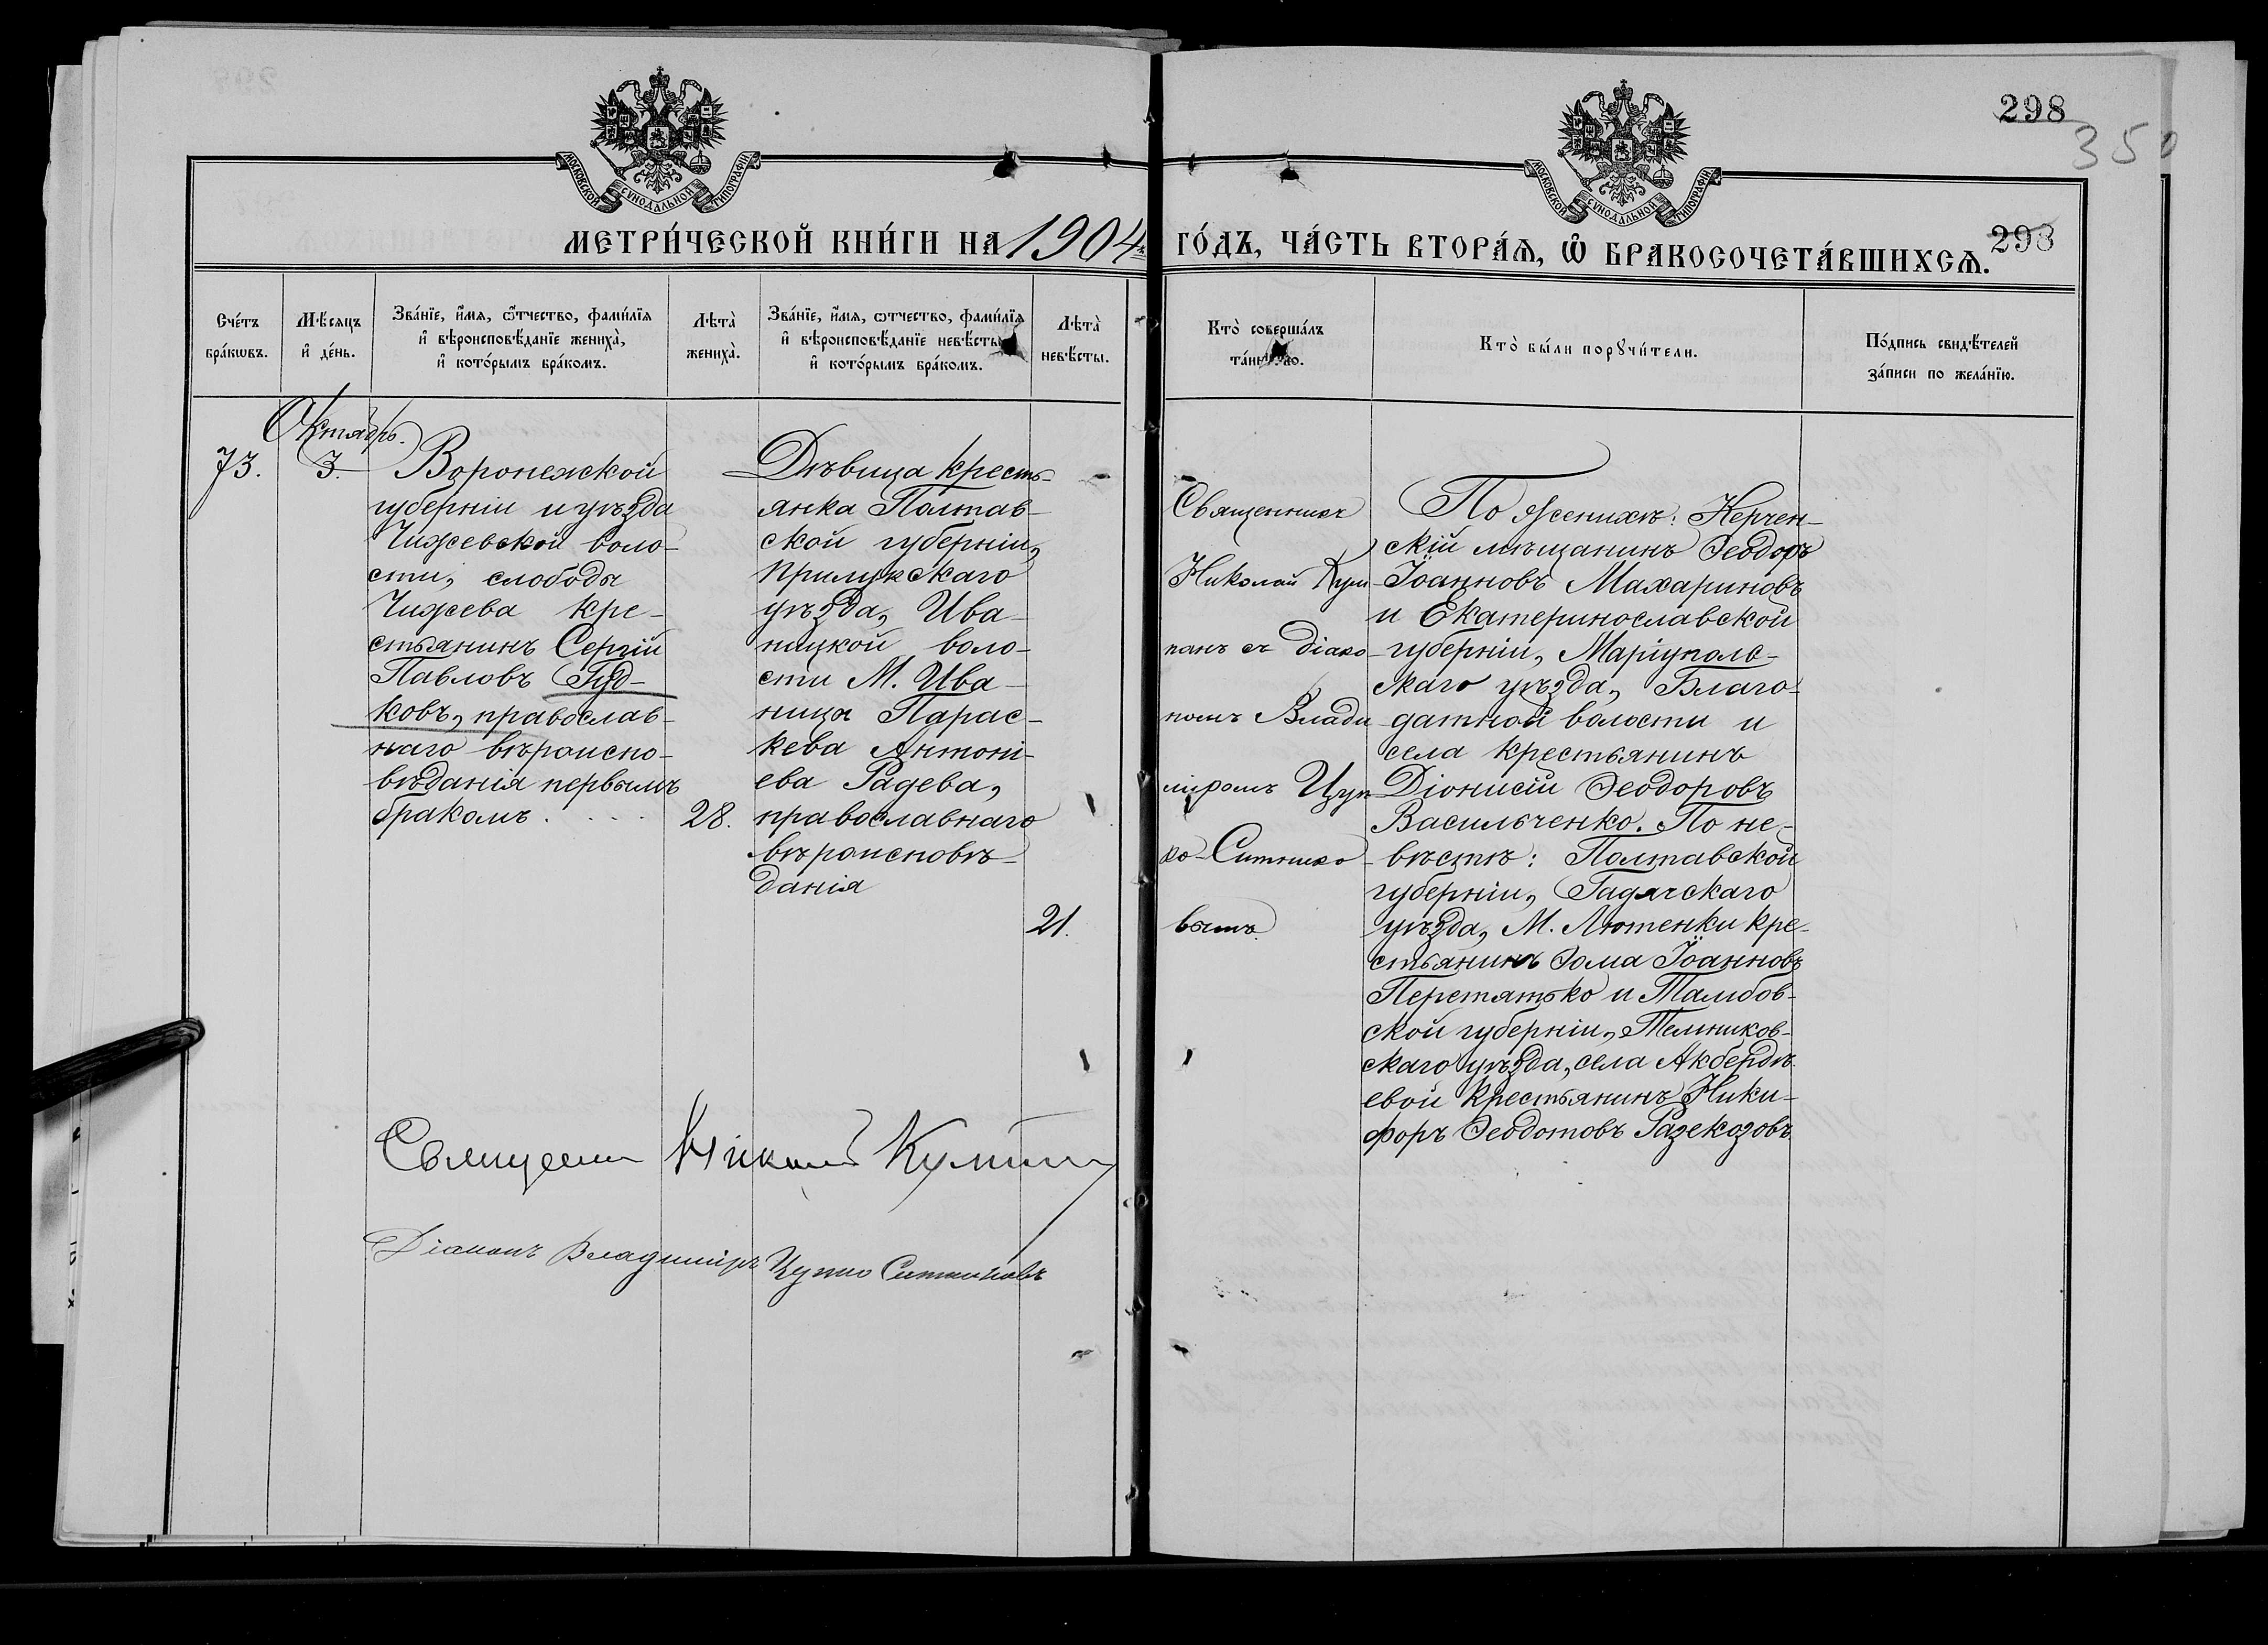 298
350
МОСКОВСКОЙ СѴНОДАЛЬНОЙ ТИПОГРАФІИ
МОСКОВСКОЙ СѴНОДАЛЬНОЙ ТИПОГРАФІИ
МЕТРИ́ЧЕСКОЙ КНИ́ГИ НА 1904 ГО́ДЪ, ЧА́СТЬ ВТОРА́Ѧ, Ѿ БРАКОСОЧЕТА́ВШИХСѦ.
298
Сче́тъ
бра́кѡвъ.
Мѣ́сяцъ
и҆ де́нь.
Зва́нїе, и҆́мѧ, ѻ҆́тчество, фами́лїѧ
и҆ вѣроисповѣ́данїе жениха̀,
и҆ кото́рымъ бра́комъ.
Лѣта̀
жениха̀.
Зва́нїе, и҆́мѧ, ѻ҆́тчество, фами́лїѧ
и҆ вѣроисповѣ́данїе невѣ́сты
и҆ кото́рымъ бра́комъ.
Лѣта̀
невѣ́сты.
Кто̀ соверша́лъ
та́инство.
Кто̀ бы́ли порꙋчи́тели.
По́дпись свидѣ́телей
за́писи по жела́нїю.
Октябрь.
73.
3.
Воронежской
губерніи и уѣзда
Чижевской воло-
сти, слободы
Чижева кре-
стьянинъ Сергій
Павловъ Гуд-
ковъ, православ-
наго вѣроиспо-
вѣданія первымъ
бракомъ. . . .
28.
Дѣвица кресть-
янка Полтав-
ской губерніи,
Прилукскаго
уѣзда, Ива-
ницкой воло-
сти М. Ива-
ницы Парас-
кева Антоні-
ева Радева,
православнаго
вѣроисповѣ-
данія
21.
Священникъ
Николай Кум-
панъ съ діако-
номъ Влади-
міромъ Цуп
ко-Ситнико-
вымъ.
По женихѣ: Керчен-
скій мѣщанинъ Ѳеодоръ
Іоанновъ Махариновъ
и Екатеринославской
губерніи, Маріуполь-
скаго уѣзда, Благо-
датной волости и
села крестьянинъ
Діонисій Ѳеодоровъ
Васильченко. По не-
вѣстѣ: Полтавской
губерніи, Гадячскаго
уѣзда, М. Лютенки кре-
стьянинъ Ѳома Іоанновъ
Перетятько и Тамбов-
ской губерніи, Темников-
скаго уѣзда, села Акбердѣ-
евой крестьянинъ Ники-
форъ Ѳеодотовъ Разекозовъ.
Священникъ Николай Кумпанъ
Діаконъ Владиміръ Цупко Ситниковъ